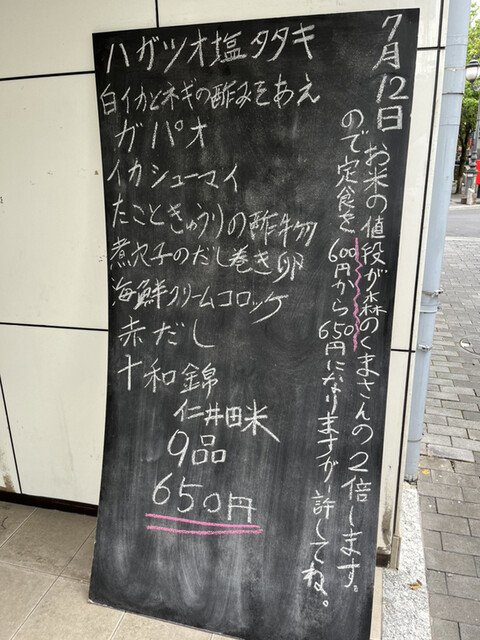 7月12日
お米の値段が森のくまさんの2倍します。
ので定食を600円から650円になりますが許してね。
ハガツオ塩タタキ
白イカとネギの酢みそあえ
ガパオ
イカシューマイ
たこときゅうりの酢物
煮穴子のだし巻き卵
海鮮クリームコロッケ
赤だし
十和錦
仁井田米
9品
650円